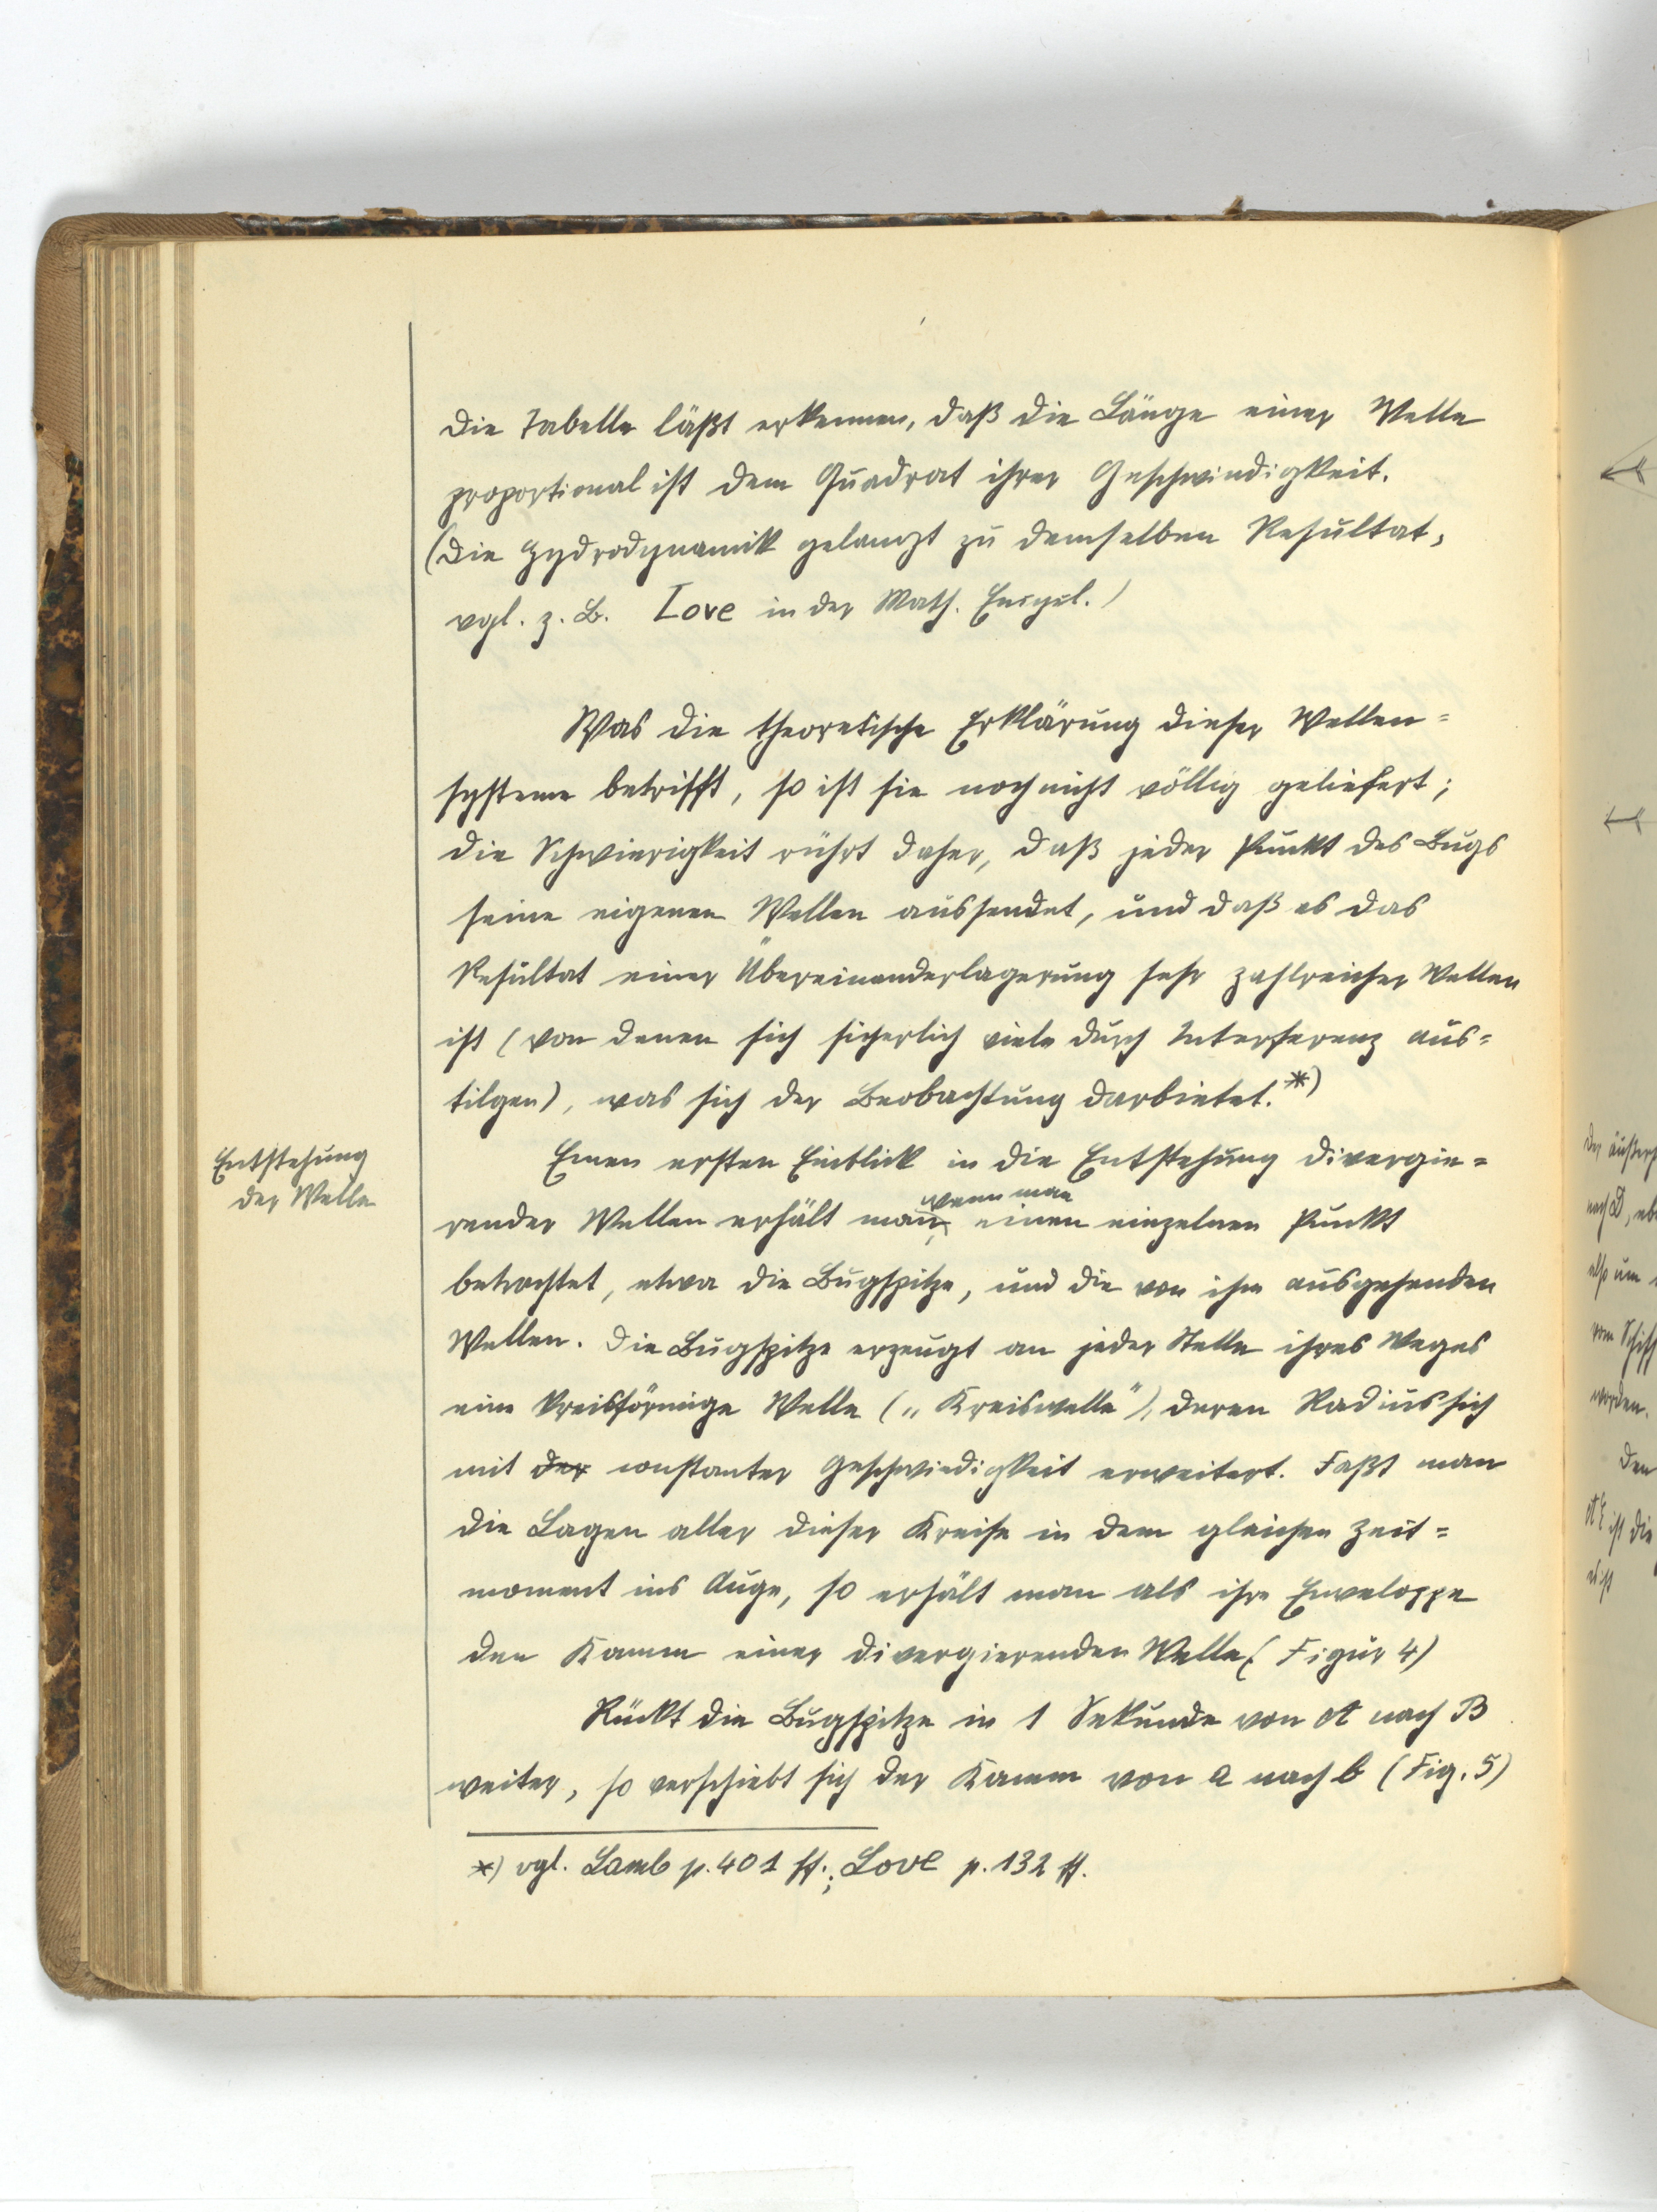 Die Tabelle läßt erkennen, daß die Länge einer Welle
proportional ist dem Quadrat ihrer Geschwindigkeit.
(Die Hydrodynamik gelangt zu demselben Resultat,
vgl. z. B. Love in der Math. Encycl.)
Was die theoretische Erklärung dieser Wellen=
systeme betrifft, so ist sie noch nicht völlig geliefert;
die Schwierigkeit rührt daher, daß jeder Punkt des Bugs
seine eigenen Wellen aussendet, und daß es das
Resultat einer Übereinanderlagerung sehr zahlreicher Wellen
ist (von denen sich sicherlich viele durch Interferenz aus=
tilgen), was sich der Beobachtung darbietet.*)
Entstehung
der Welle
Einen ersten Einblick in die Entstehung divergie=
render Wellen erhält man, wenn man einen einzelnen Punkt
betrachtet, etwa die Bugspitze, und die von ihm ausgehenden
Wellen. Die Bugspitze erzeugt an jeder Stelle ihres Weges
eine kreisförmige Welle („Kreiswelle"), deren Radius sich
mit der constanter Geschwindigkeit erweitert. Faßt man
die Lagen aller dieser Kreise in dem gleichen Zeit=
moment ins Auge, so erhält man als ihre Enveloppe
den Kamm einer divergierenden Welle (Figur 4)
Rückt die Bugspitze in 1 Sekunde von A nach B
weiter, so verschiebt sich der Kamm von a nach b (Fig. 5)
*) vgl. Lamb p. 401 ff.; Love p. 132 ff.
der äußers
nach D,
also um
vom Schiff
worden.
Den
AE ist die